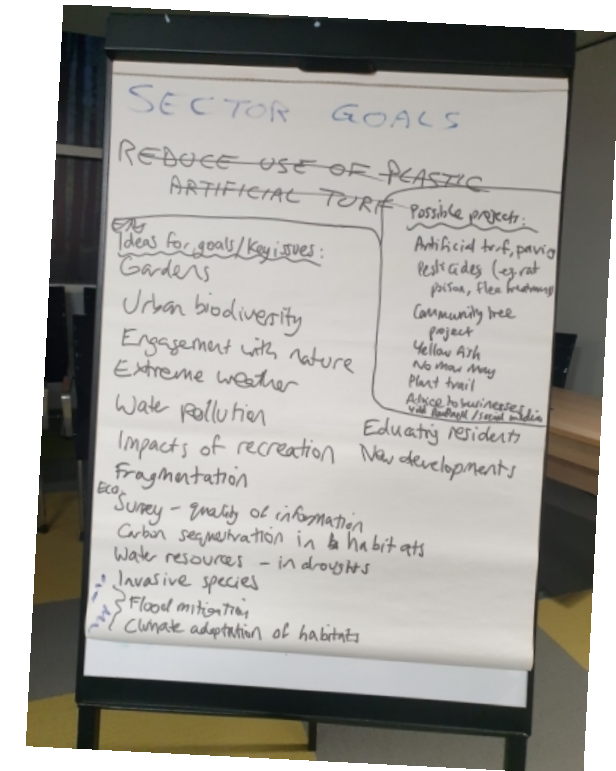 SECTOR GOALS
REDUCE USE OF PLASTIC
ARTIFICIAL TURF
Ideas for goals/Key issues:
Gardens
Urban biodiversity
Engagement with nature
Extreme weather
Water pollution
Impacts of recreation
Fragmentation
Eco
Survey - quality of information
Carbon sequestration in habitats
Water resources - in droughts
Invasive species
Flood mitigation
Climate adaptation of habitats
Possible projects:
Artificial turf, paving
Pesticides (eg. rat
poison, flea treatment
Community tree
project
Yellow Fish
No mow May
Plant trail
Advice to businesses
with / social media
Educating residents
New developments